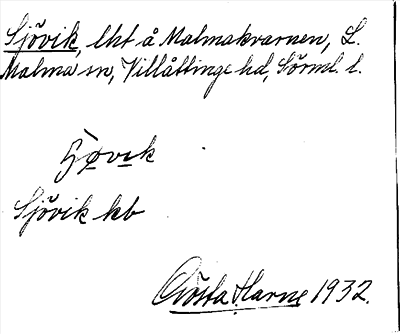 Sjövik, lht å Malmakvarnen, L.
Malma sn, Villåttinge hd, Sörml. l.
Sjövik kb
Gösta Harne 1932.